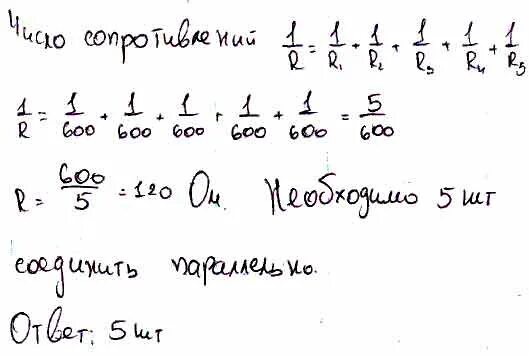 Число сопротивлений 1/R = 1/R₁ + 1/R₂ + 1/R₃ + 1/R₄ + 1/R₅
1/R = 1/600 + 1/600 + 1/600 + 1/600 + 1/600 = 5/600
R = 600/5 = 120 Ом. Необходимо 5 шт
соединить параллельно.
Ответ: 5 шт